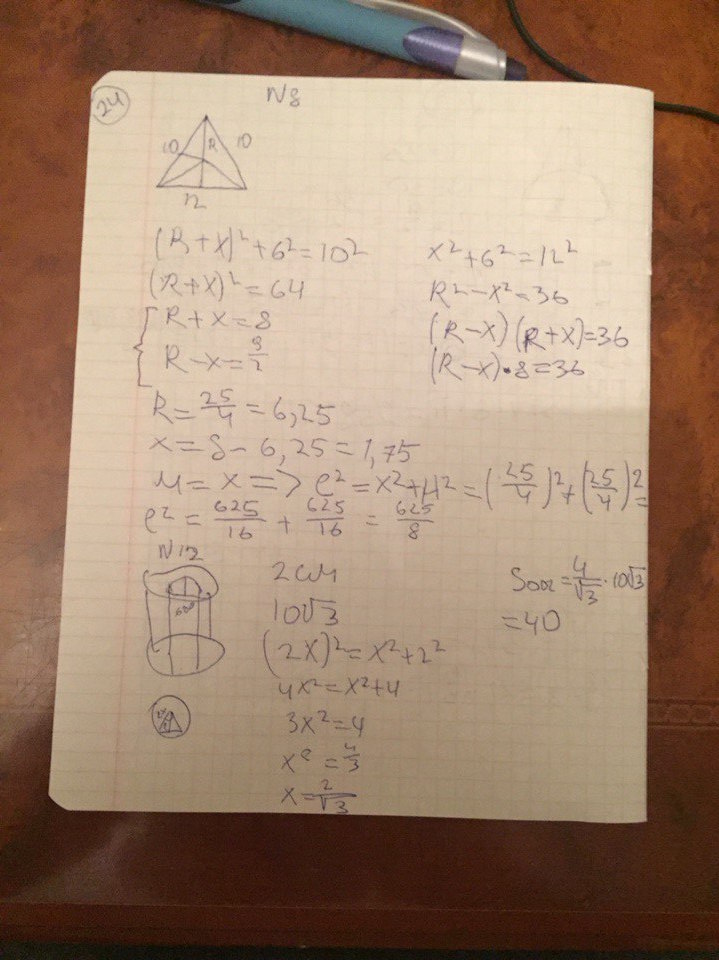 24
N8
10 R 10
12
(R+x)²+6²=10²
(R+x)²=64
R+x=8
R-x=9/2
x²+6²=12²
R²-x²=36
(R-x)(R+x)=36
(R-x)•8=36
R=25/4=6,25
x=8-6,25=1,75
м=x=>l²=x²+H²=(25/4)²+(25/4)²=
l²=625/16+625/16=625/8
N12
2см
10√3
(2x)²=x²+2²
4x²=x²+4
3x²=4
x²=4/3
x=2/√3
Sсеч=4/√3·10√3
=40